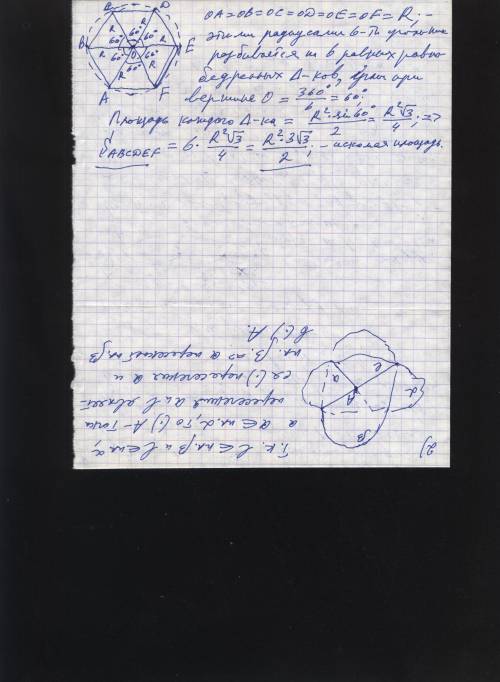 OA=OB=OC=OD=OE=OF=R; –
этими радиусами 6-ти угольник
разбивается на 6 равных равно-
бедренных Δ-ков, углы при
вершине O = 360°/6 = 60°.
Площадь каждого Δ-ка = R²·sin60°/2 = R²√3/4; =>
S_ABCDEF = 6·R²√3/4 = R²·3√3/2; – искомая площадь.
C D
B E
A F
O
R R R R R R
60° 60° 60° 60° 60° 60°
2)
Т.к. b ∈ пл. β и b ∈ пл. α,
а a ∈ пл. α, то (·) A – точка
пересечения a и b явл.
(·) пересечения a и
пл. β => a пересекает пл. β
в (·) A.
a b
A
α
β